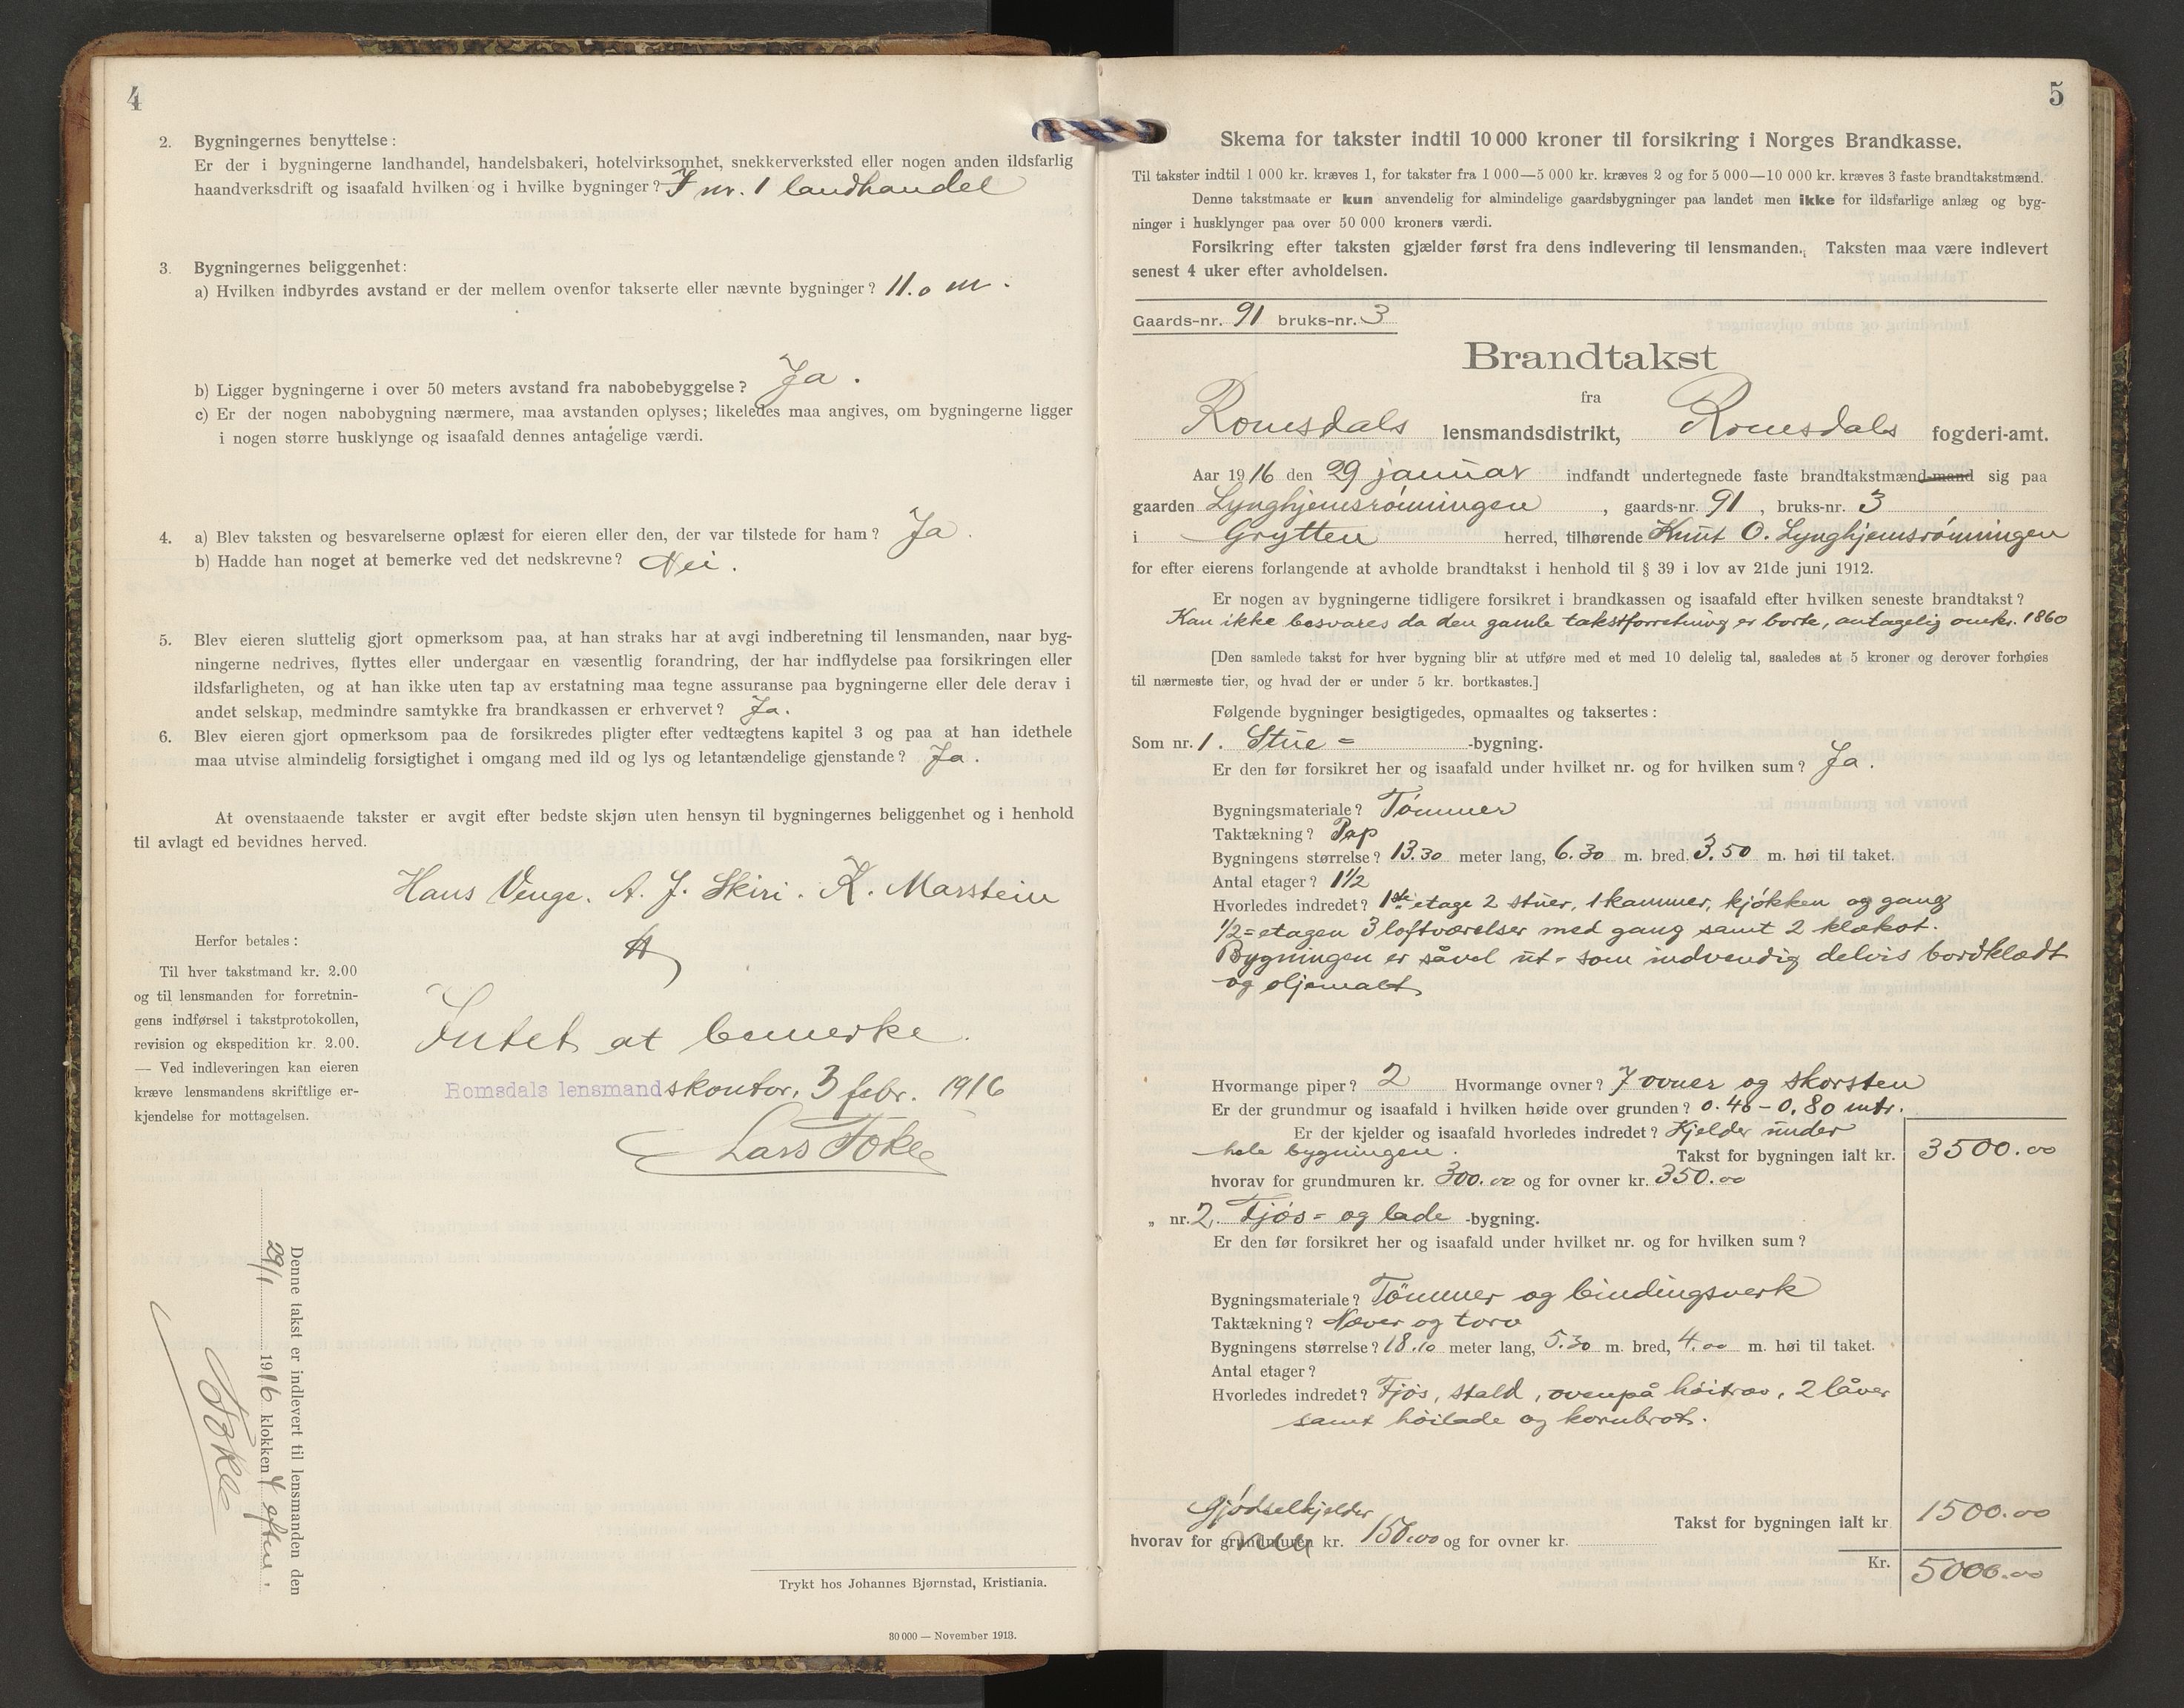 4
2. Bygningernes benyttelse:
Er der i bygningerne landhandel, handelsbakeri, hotelvirksomhet, snekkerverksted eller nogen anden ildsfarlig
haandverksdrift og isaafald hvilken og i hvilke bygninger? I nr. 1 landhandel
3. Bygningernes beliggenhet:
a) Hvilken indbyrdes avstand er der mellem ovenfor takserte eller nævnte bygninger? 11.0 m.
b) Ligger bygningerne i over 50 meters avstand fra nabobebyggelse? Ja.
c) Er der nogen nabobygning nærmere, maa avstanden oplyses; likeledes maa angives, om bygningerne ligger
i nogen større husklynge og isaafald dennes antagelige værdi.
4. a) Blev taksten og besvarelserne oplæst for eieren eller den, der var tilstede for ham? Ja.
b) Hadde han noget at bemerke ved det nedskrevne? Nei.
5. Blev eieren sluttelig gjort opmerksom paa, at han straks har at avgi indberetning til lensmanden, naar byg-
ningerne nedrives, flyttes eller undergaar en væsentlig forandring, der har indflydelse paa forsikringen eller
ildsfarligheten, og at han ikke uten tap av erstatning maa tegne assuranse paa bygningerne eller dele derav i
andet selskap, medmindre samtykke fra brandkassen er erhvervet? Ja.
6. Blev eieren gjort opmerksom paa de forsikredes pligter efter vedtægtens kapitel 3 og paa at han idethele
maa utvise almindelig forsigtighet i omgang med ild og lys og letantændelige gjenstande? Ja.
At ovenstaaende takster er avgit efter bedste skjøn uten hensyn til bygningernes beliggenhet og i henhold
til avlagt ed bevidnes herved.
Hans Venge. A. J. Skiri. K. Marstein
Herfor betales:
Til hver takstmand kr. 2.00
og til lensmanden for forretnin-
gens indførsel i takstprotokollen,
revision og ekspedition kr. 2.00.
— Ved indleveringen kan eieren
kræve lensmandens skriftlige er-
kjendelse for mottagelsen.
Intet at bemerke.
Romsdals lensmandskontor, 3 febr. 1916
Lars Tokle
Denne takst er indlevert til lensmanden den
29/1 1916 klokken 4 eftm.
Tokle
Trykt hos Johannes Bjørnstad, Kristiania.
30 000 — November 1913.
5
Skema for takster indtil 10 000 kroner til forsikring i Norges Brandkasse.
Til takster indtil 1 000 kr. kræves 1, for takster fra 1 000—5 000 kr. kræves 2 og for 5 000—10 000 kr. kræves 3 faste brandtakstmænd.
Denne takstmaate er kun anvendelig for almindelige gaardsbygninger paa landet men ikke for ildsfarlige anlæg og byg-
ninger i husklynger paa over 50 000 kroners værdi.
Forsikring efter taksten gjælder først fra dens indlevering til lensmanden. Taksten maa være indlevert
senest 4 uker efter avholdelsen.
Gaards-nr. 91 bruks-nr. 3
Brandtakst
fra
Romsdals lensmandsdistrikt, Romsdals fogderi-amt.
Aar 1916 den 29 januar indfandt undertegnede faste brandtakstmænd-mand sig paa
gaarden Lynghjemsrømningen, gaards-nr. 91, bruks-nr. 3
i Grytten herred, tilhørende Knut O. Lynghjemsrømningen
for efter eierens forlangende at avholde brandtakst i henhold til § 39 i lov av 21de juni 1912.
Er nogen av bygningerne tidligere forsikret i brandkassen og isaafald efter hvilken seneste brandtakst?
Kan ikke besvares da den gamle takstforretning er borte, antagelig omkr. 1860
[Den samlede takst for hver bygning blir at utføre med et med 10 delelig tal, saaledes at 5 kroner og derover forhøies
til nærmeste tier, og hvad der er under 5 kr. bortkastes.]
Følgende bygninger besigtigedes, opmaaltes og taksertes:
Som nr. 1. Stue= -bygning.
Er den før forsikret her og isaafald under hvilket nr. og for hvilken sum? Ja.
Bygningsmateriale? Tømmer
Taktækning? Pap
Bygningens størrelse? 13.30 meter lang, 6.30 m. bred, 3.50 m. høi til taket.
Antal etager? 1½
Hvorledes indredet? 1ste etage 2 stuer, 1 kammer, kjøkken og gang
½= etagen 3 loftværelser med gang samt 2 klækot.
Bygningen er såvel ut= som indvendig delvis bordklædt
og oljemalt
Hvormange piper? 2 Hvormange ovner? 7 ovner og skorsten
Er der grundmur og isaafald i hvilken høide over grunden? 0.40 – 0.80 mtr.
Er der kjelder og isaafald hvorledes indredet? Kjelder under
hele bygningen. Takst for bygningen ialt kr. 3500.00
hvorav for grundmuren kr. 300.00 og for ovner kr. 350.00
„ nr. 2. Fjøs= og lade -bygning.
Er den før forsikret her og isaafald under hvilket nr. og for hvilken sum?
Bygningsmateriale? Tømmer og bindingsverk
Taktækning? Næver og torv
Bygningens størrelse? 18.10 meter lang, 5.30 m. bred, 4.00 m. høi til taket.
Antal etager?
Hvorledes indredet? Fjøs, stald, ovenpå høitrøv, 2 låver
samt høilade og kornbrot.
Gjødselkjelder
Takst for bygningen ialt kr 1500.00
hvorav for grundmuren kr. 150.00 og for ovner kr.
Kr. 5000.00